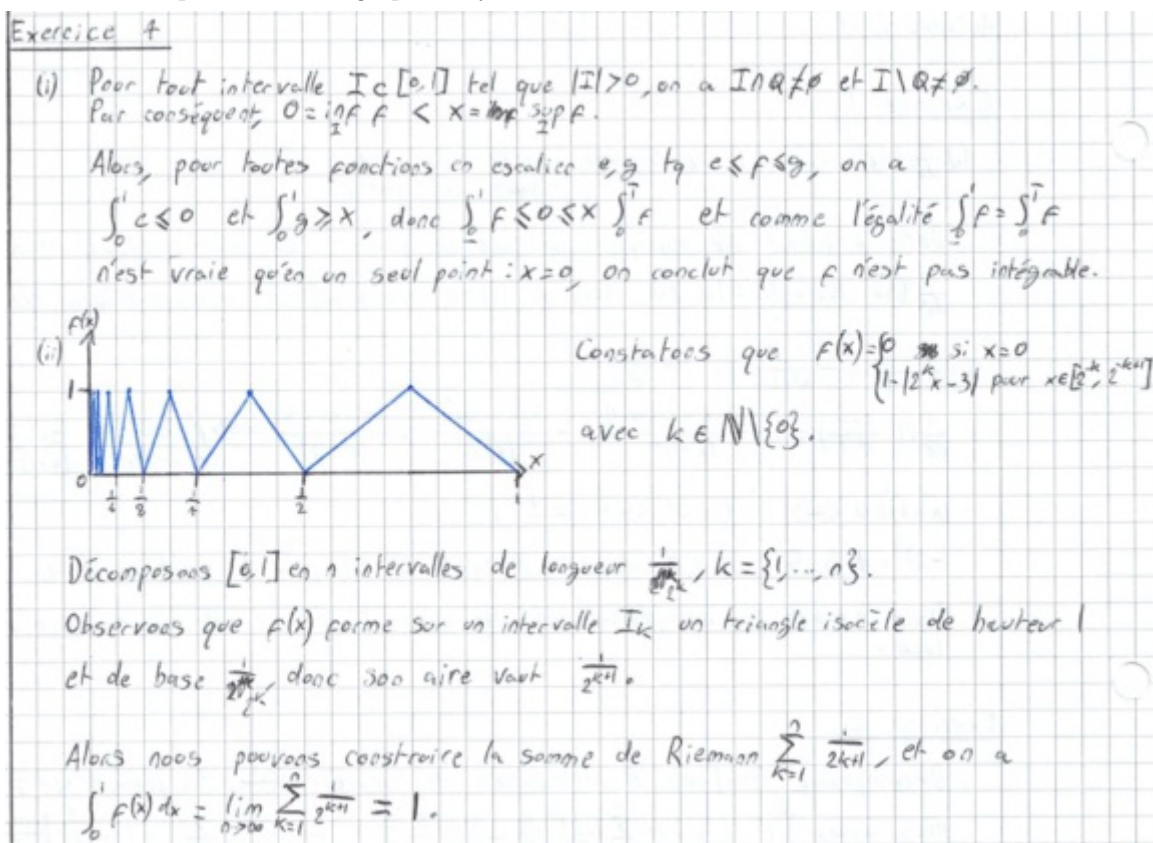 Exercice 4
(i) Pour tout intervalle I ⊂ [0,1] tel que |I|>0, on a I∩Q≠∅ et I\Q≠∅.
Par conséquent, 0 = inf_I f < x = sup_I f.
Alors, pour toutes fonctions en escalier e,g tq e≤f≤g, on a
∫₀¹ e ≤ 0 et ∫₀¹ g ≥ x, donc ∫̲₀¹ f ≤ 0 ≤ x ∫̅₀¹ f et comme l'égalité ∫̲₀¹ f = ∫̅₀¹ f
n'est vraie qu'en un seul point : x=0, on conclut que f n'est pas intégrable.
(ii) f(x)
1
0 1/8 1/4 1/2 1 x
Constatons que f(x) = {0 si x=0
{1-|2^k x-3| pour x∈[2^-k, 2^-k+1]
avec k ∈ ℕ\{0}.
Décomposons [0,1] en n intervalles de longueur 1/2^k, k = {1,..., n}.
Observons que f(x) forme sur un intervalle I_k un triangle isocèle de hauteur 1
et de base 1/2^k, donc son aire vaut 1/2^(k+1).
Alors nous pouvons construire la somme de Riemann Σ_{k=1}^n 1/2^(k+1), et on a
∫₀¹ f(x) dx = lim_{n→∞} Σ_{k=1}^n 1/2^(k+1) = 1.